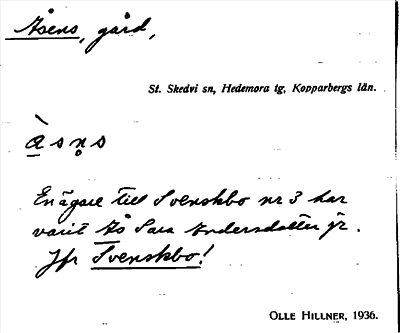 Åsens, gård,
St. Skedvi sn, Hedemora tg, Kopparbergs län.
à s n̥ s
En ägare till Svenskbo nr 3 har
varit Ås Sara Andersdotter jr.
Jfr Svenskbo!
OLLE HILLNER, 1936.